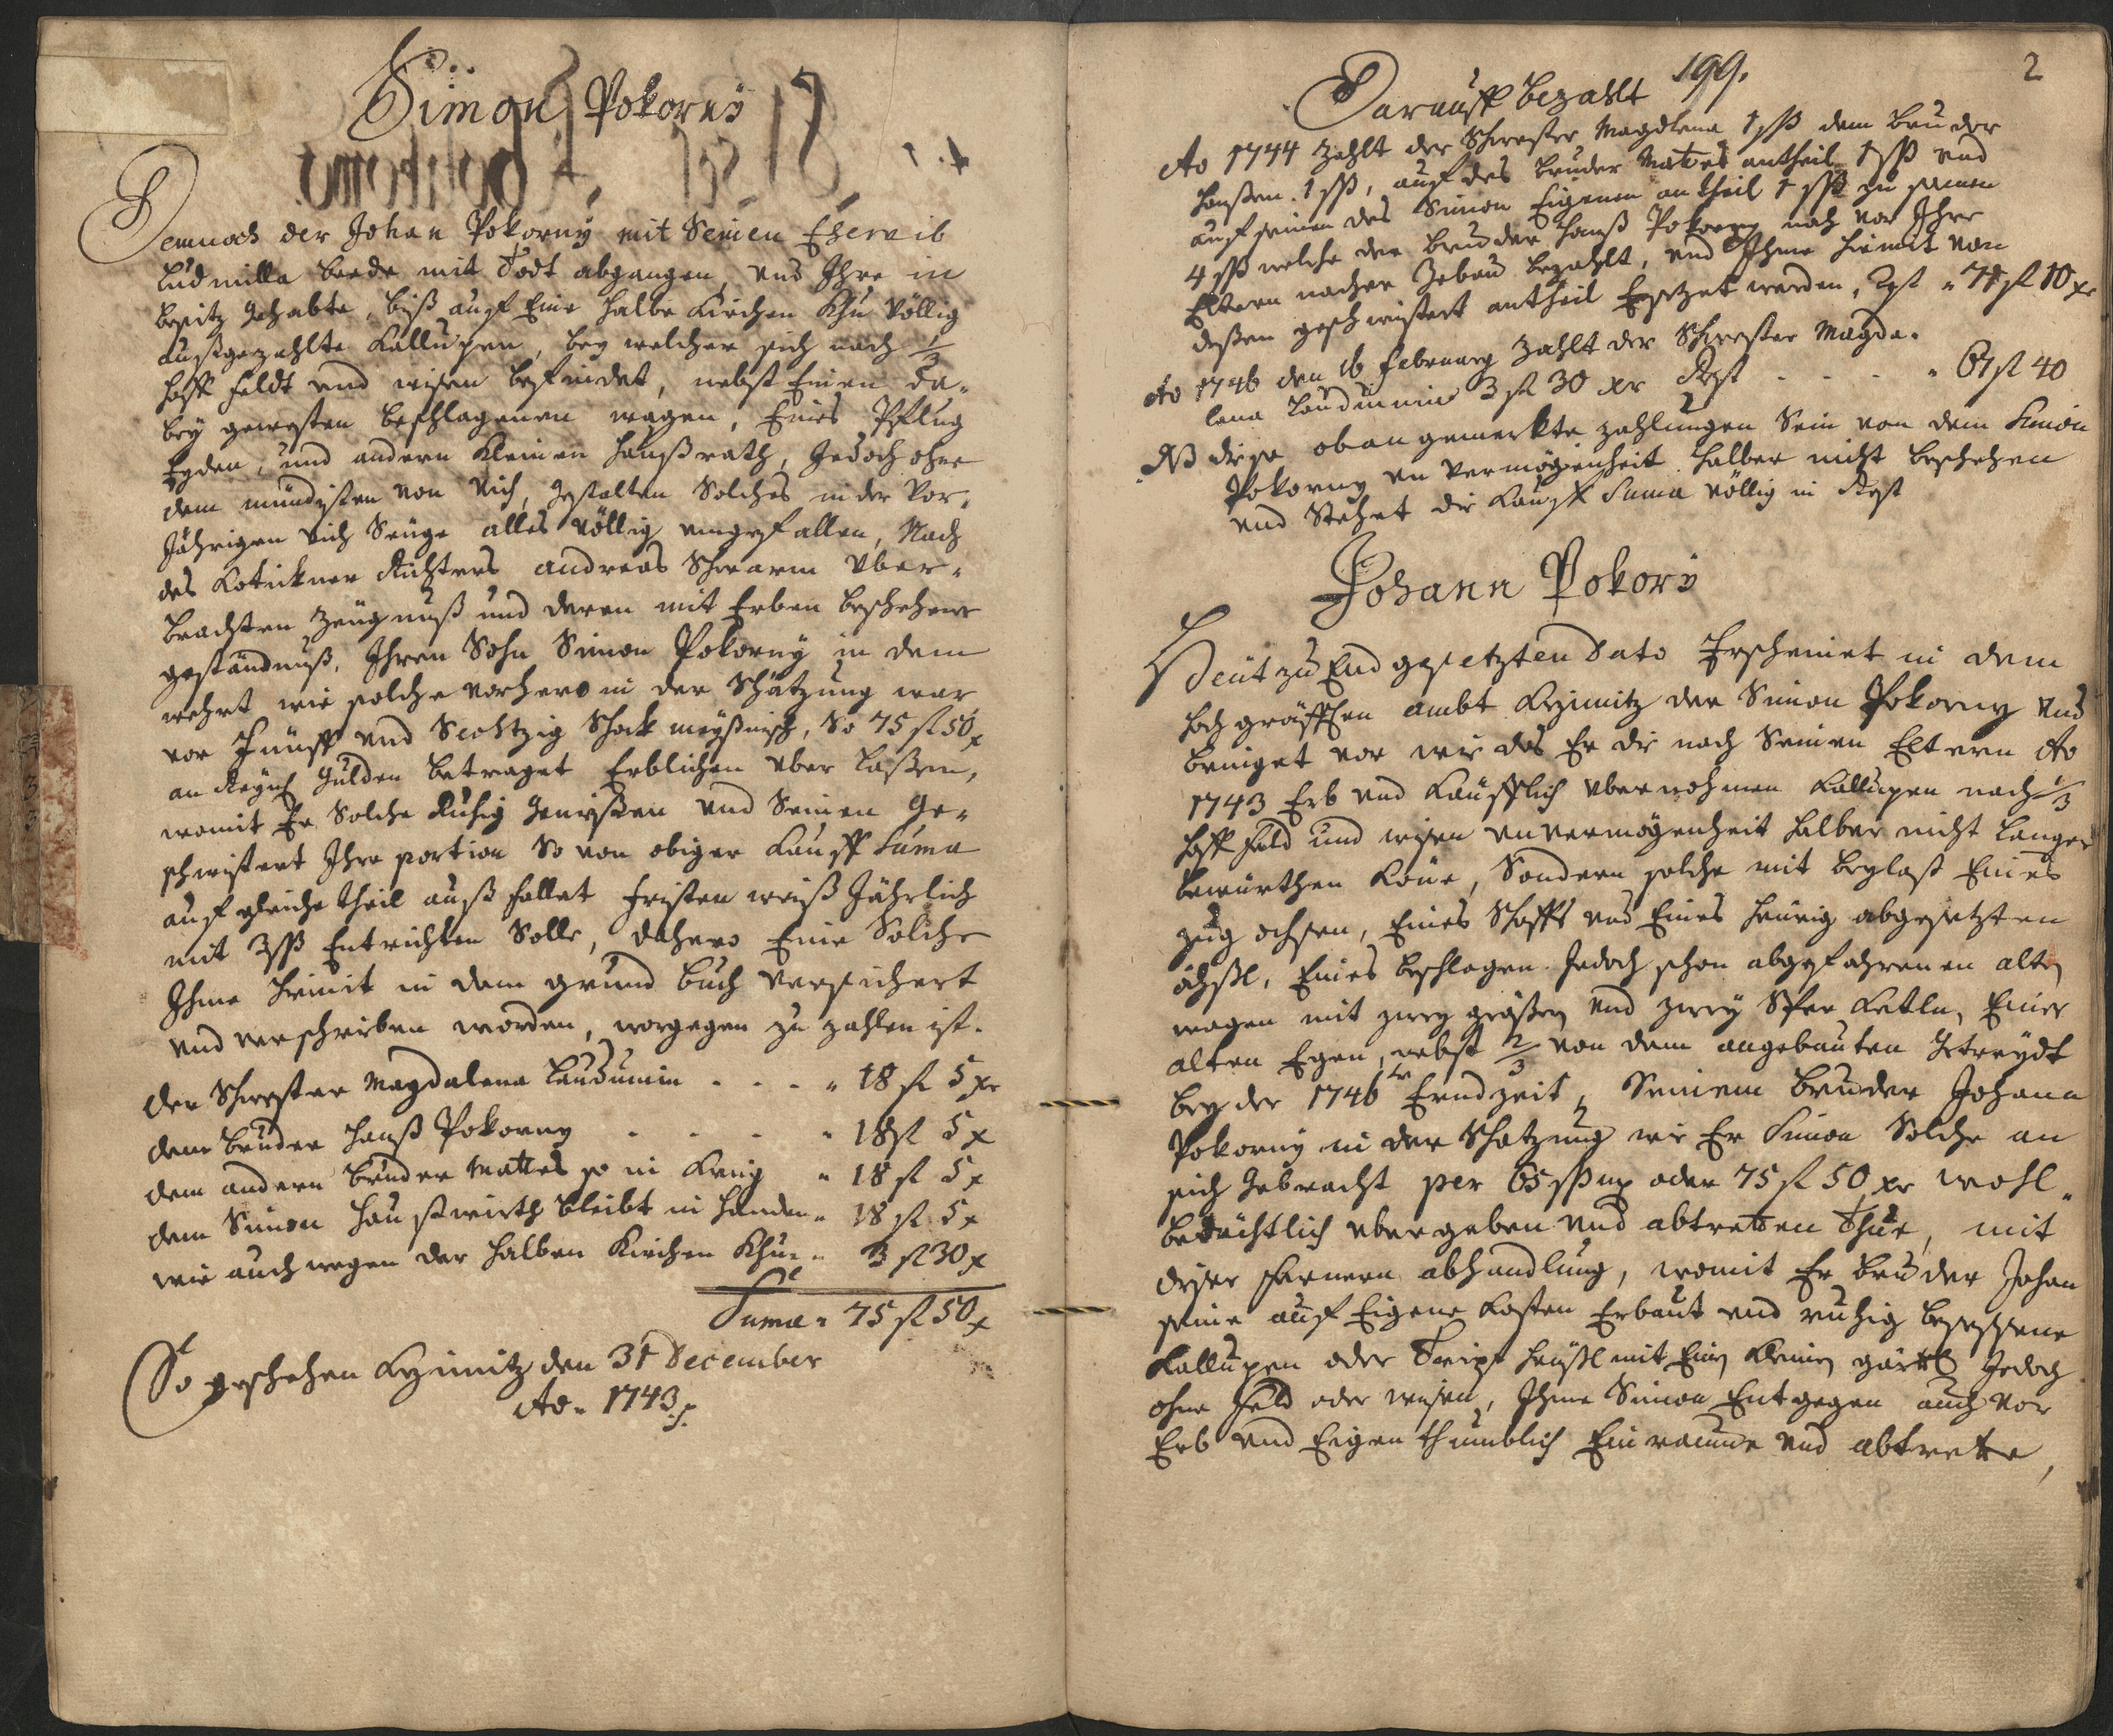 Simon Pokorny
Demnach der Johan Pokorny mit Seinen Eheweib
Ludmilla beede mit Todt abgangen, und Ihre in
besitz gehabte, biß auf Eine halbe Kirchen Khu völlig
außgezahlte Kallupen, bey welcher sich nach 1/3
hoff feldt und wisen befindet, nebst Einen da-
bey gewesten beschlagenen wagen, Eines Pflug
Eyden, und andern Kleinen haußrath, Jedoch ohne
dem mündisten von Vich, gestalten Solches in der Vor-
Jährigen Vich Seuge alles völlig umgefallen, Nach
des Kotickner Richters andreas Schwarm Vber-
brachten Zeugnuß und deren mit Erben beschehene
geständnuß, Ihren Sohn Simon Pokorny in dem
wehrt wie solche vorhero in der Schätzung war
vor Fünff und Sechtzig Schock meyßnisch, So 75 fl 50 x
an Reynisch Gulden betraget Erblichen Vber laßen,
womit Er Solche Ruhig genißen und Seinen Ge-
schwistert Ihre portion So von obiger Kauff Suma
auf gleiche theil auß fallet fristen weiß Jährlich
mit 3 ßß Entrichten Solle, dahero Eine Solche
Ihme hiemit in dem grund buch versichert
und verschriben worden, worgegen zu zahlen ist.
der Schwester Magdalena Laudumin - - - " 18 fl 5 xr
dem bruder Hanß Pokorny - - - " 18 fl 5 x
dem andern bruder Mattes so in Krieg " 18 fl 5 x
dem Simon Haußwirth bleibt in Handen " 18 fl 5 x
wie auch wegen der halben Kirchen Khue " 3 fl 30 x
Suma " 75 fl 50 x
So geschehen Kzimitz den 31 December
Ao 1743
199.
2
Darauff bezahlt
Ao 1744 zahlt der Schwester Magdlena 1 ßß dem bruder
Hanßen 1 ßß, auf des bruder Mattes antheil 1 ßß und
auf seinen des Simon Eigenen antheil 1 ßß zu samen
4 ßß welche der bruder Hanß Pokorny nach vor Ihre
Eltern nacher bezahlt, und Ihme hiemit von
deßen geschwistert antheil Ersetzet werden, Rest " 71 fl 10 xr
Ao 1746 den 16 february zahlt der Schwester Magda-
lena Laudumin 3 fl 30 xr Rest - - - " 67 fl 40
NB dise oben gemerkte zahlungen Sein von dem Simon
Pokorny unvermögenheit halber nicht beschehen
und Stehet die Kauff Suma völlig in Rest
Johann Pokory
Heut zu End gesetzten Dato Erscheinet in dem
hochgräfflen ambt Kzimitz der Simon Pokorny und
bringet vor wie das Er die nach Seinen Eltern Ao
1743 Erb und Käufflich übernohmen Kallupen nach 1/3
hoff feld und wisen unvermögenheit halber nicht langer
bewürthen Köne, Sondern solche mit beylaß Eines
Zug ochsen, Eines Schaffs und Eines heurig abgesetzten
öchßl, Eines beschlagen Jedoch schon abgefahrenen alten
wagen mit zwey großen und zwey Kettln, Einer
alten Egen, nebst 2/3 von dem angebauten getreydt
bey der 1746er Erndzeit, Seinem bruder Johann
Pokorny in der Schatzung wie Er Simon Solche an
sich gebracht per 65 ßß mß oder 75 fl 50 xr wohl-
bedächtlich übergeben und abtretten Thue, mit
diser fernern abhandlung, womit Er bruder Johan
seine auf Eigene Kosten Erbaut und ruhig besessene
Kallupen oder häußl mit Einen Kleinen gärtl Jedoch
ohne feld oder wisen, Ihme Simon Entgegen auch vor
Erb und Eigenthumblich Einraume und abtrette,